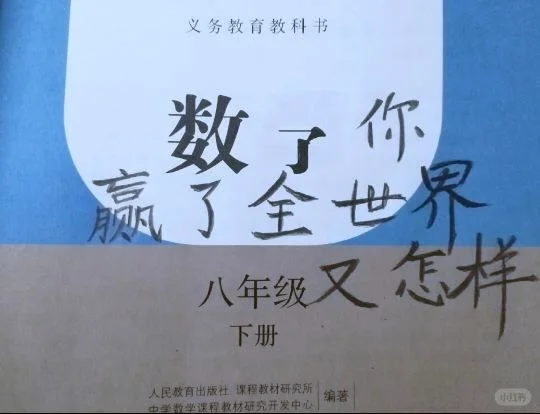 义务教育教科书
数了你
赢了全世界
八年级又怎样
下册
人民教育出版社 课程教材研究所
中学数学课程教材研究开发中心
编著
小红书